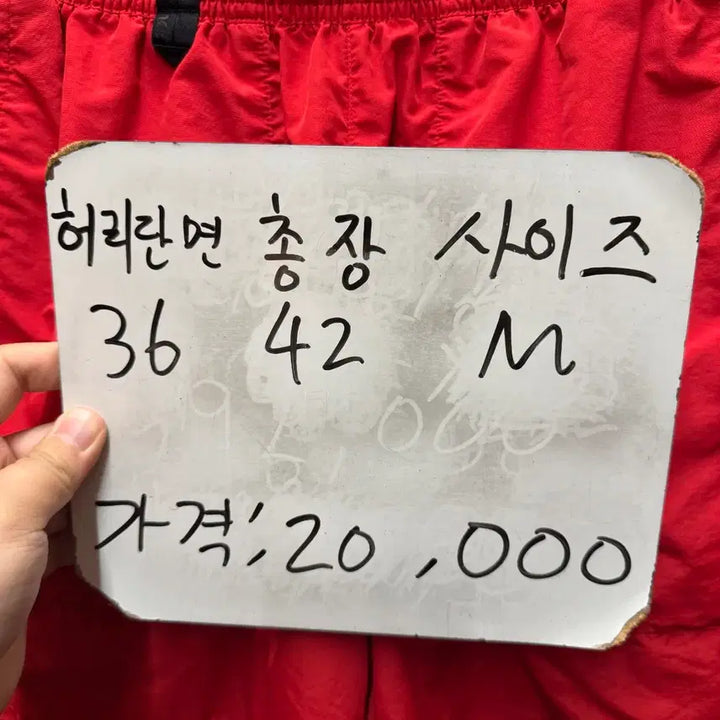 허리단면 총장 사이즈
36 42 M
가격; 20,000